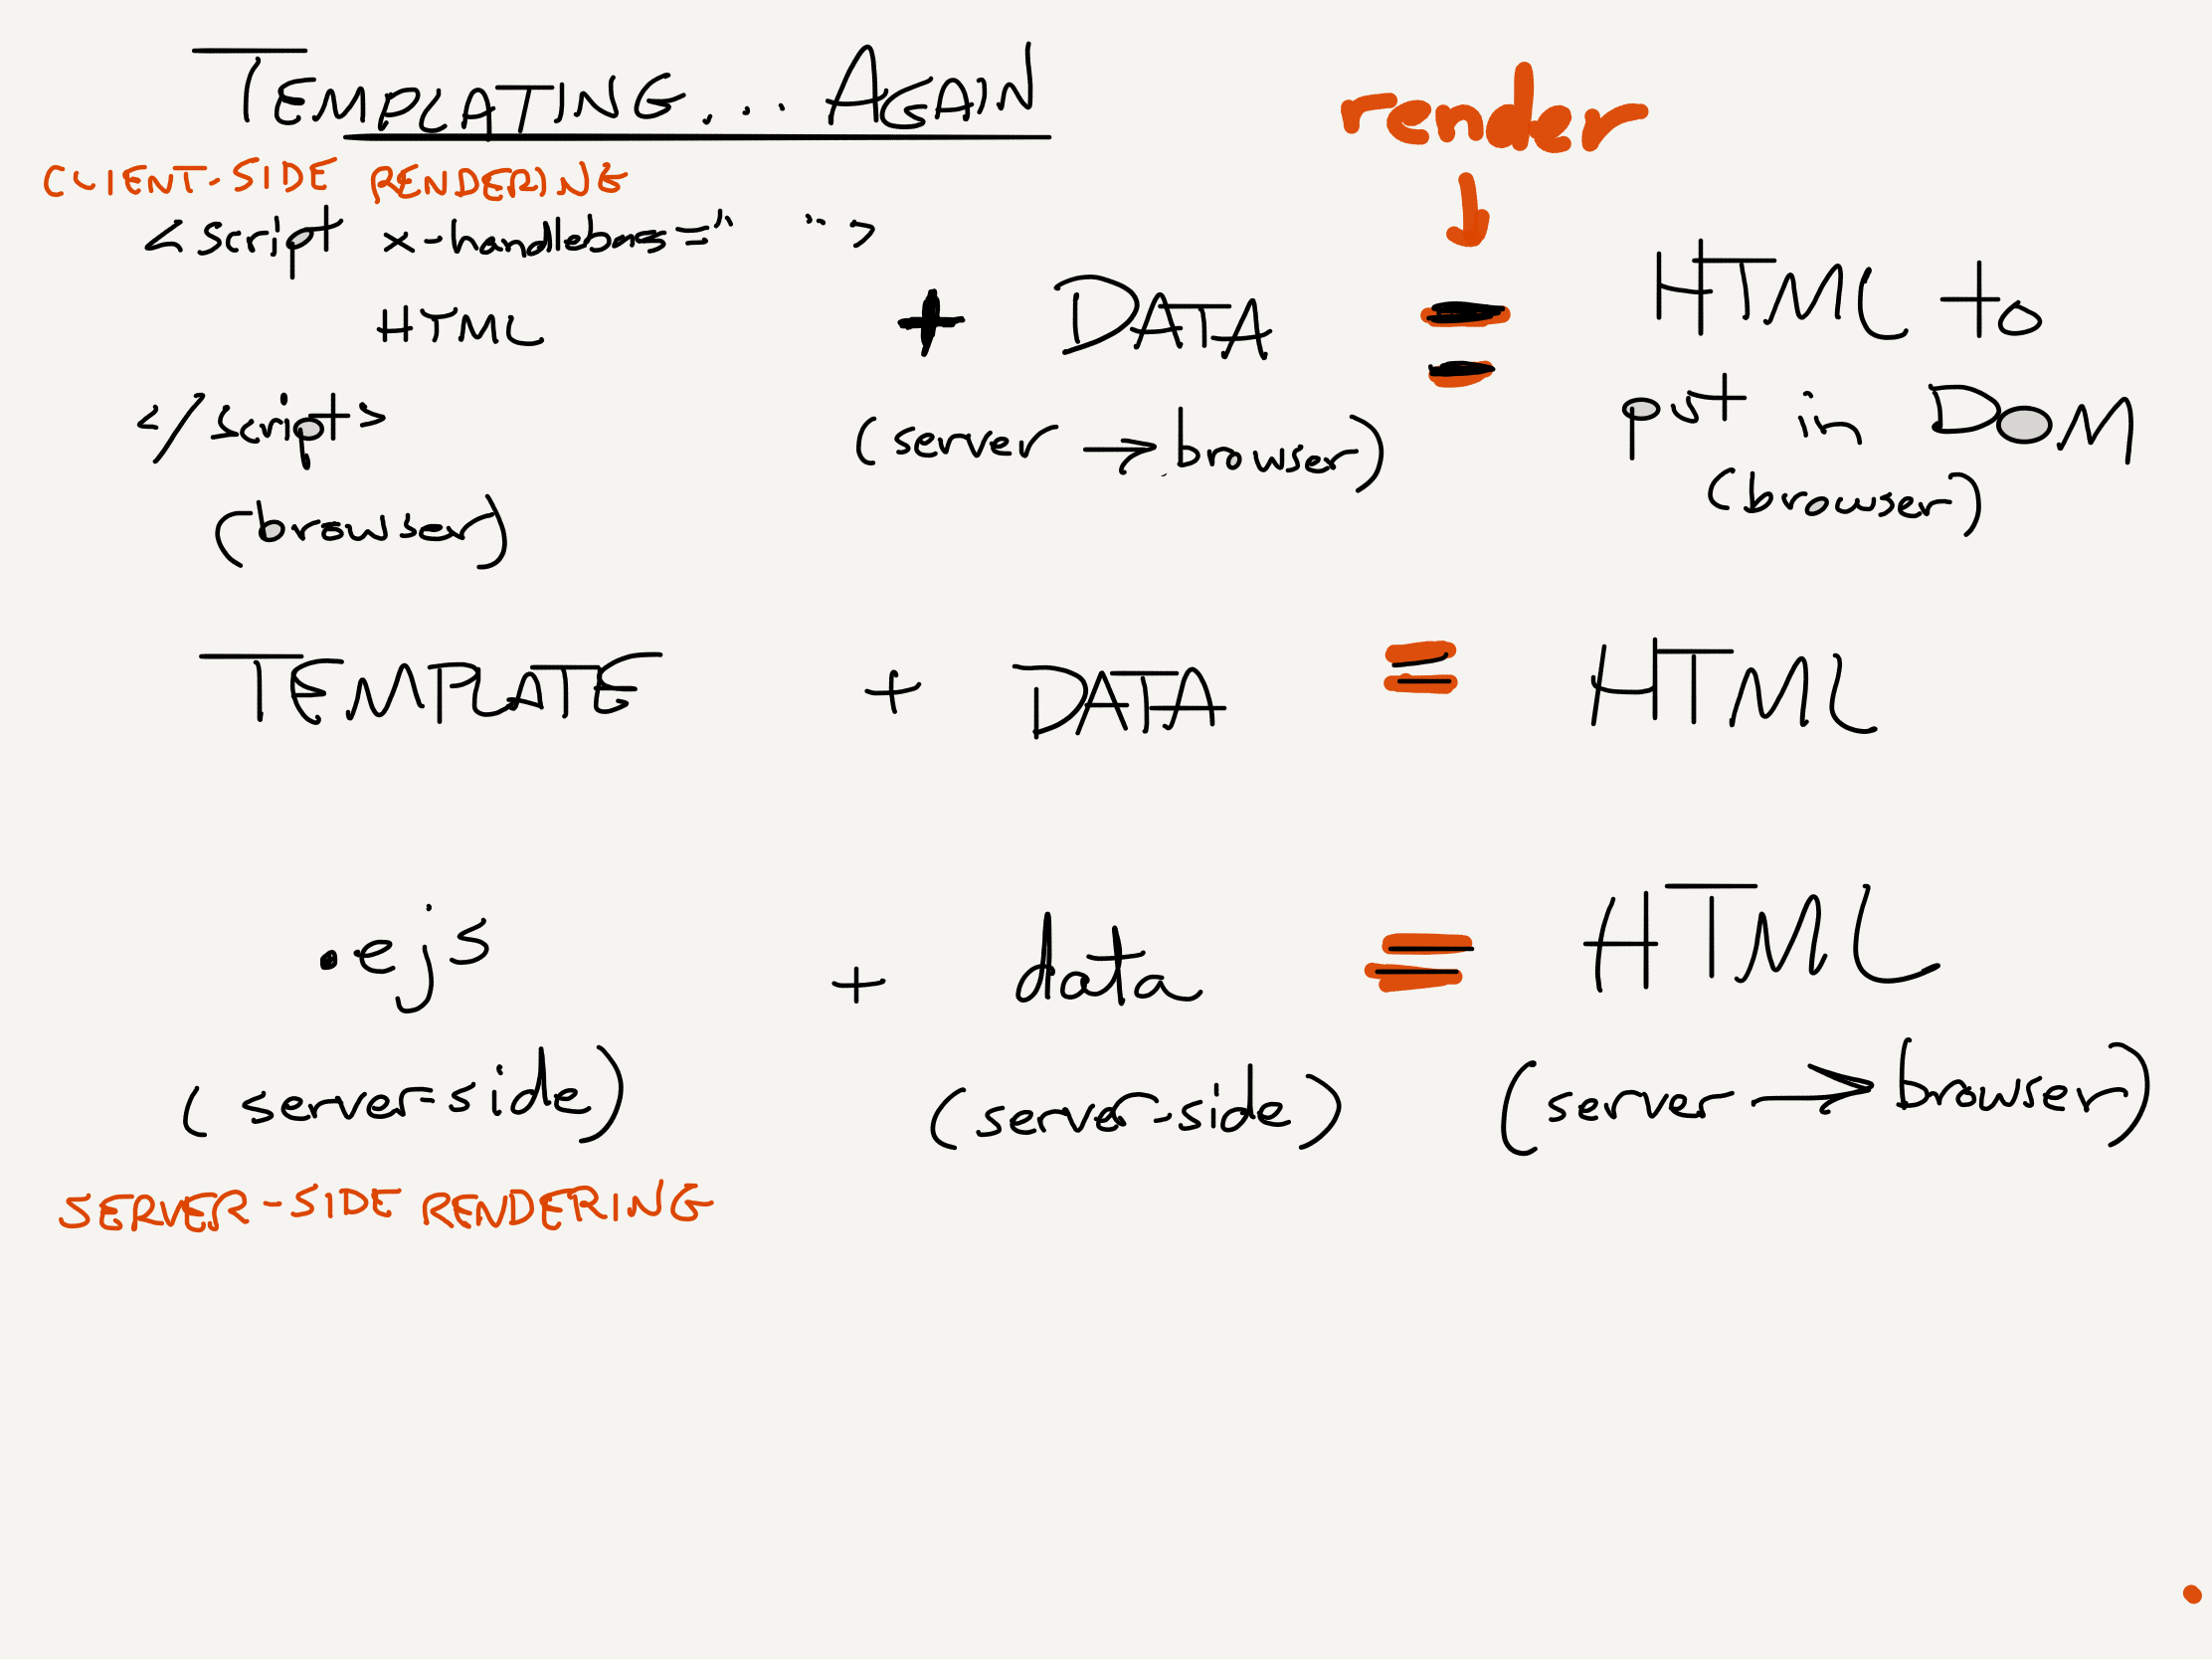 TEMPLATING... AGAIN
render
CLIENT-SIDE RENDERING
<script x-handlebars=" ">
HTML
</script>
(browser)
+ DATA
(server → browser)
=
HTML to
put in DOM
(browser)
TEMPLATE + DATA = HTML
.ejs + data = HTML
(server-side) (server-side) (server → browser)
SERVER-SIDE RENDERING